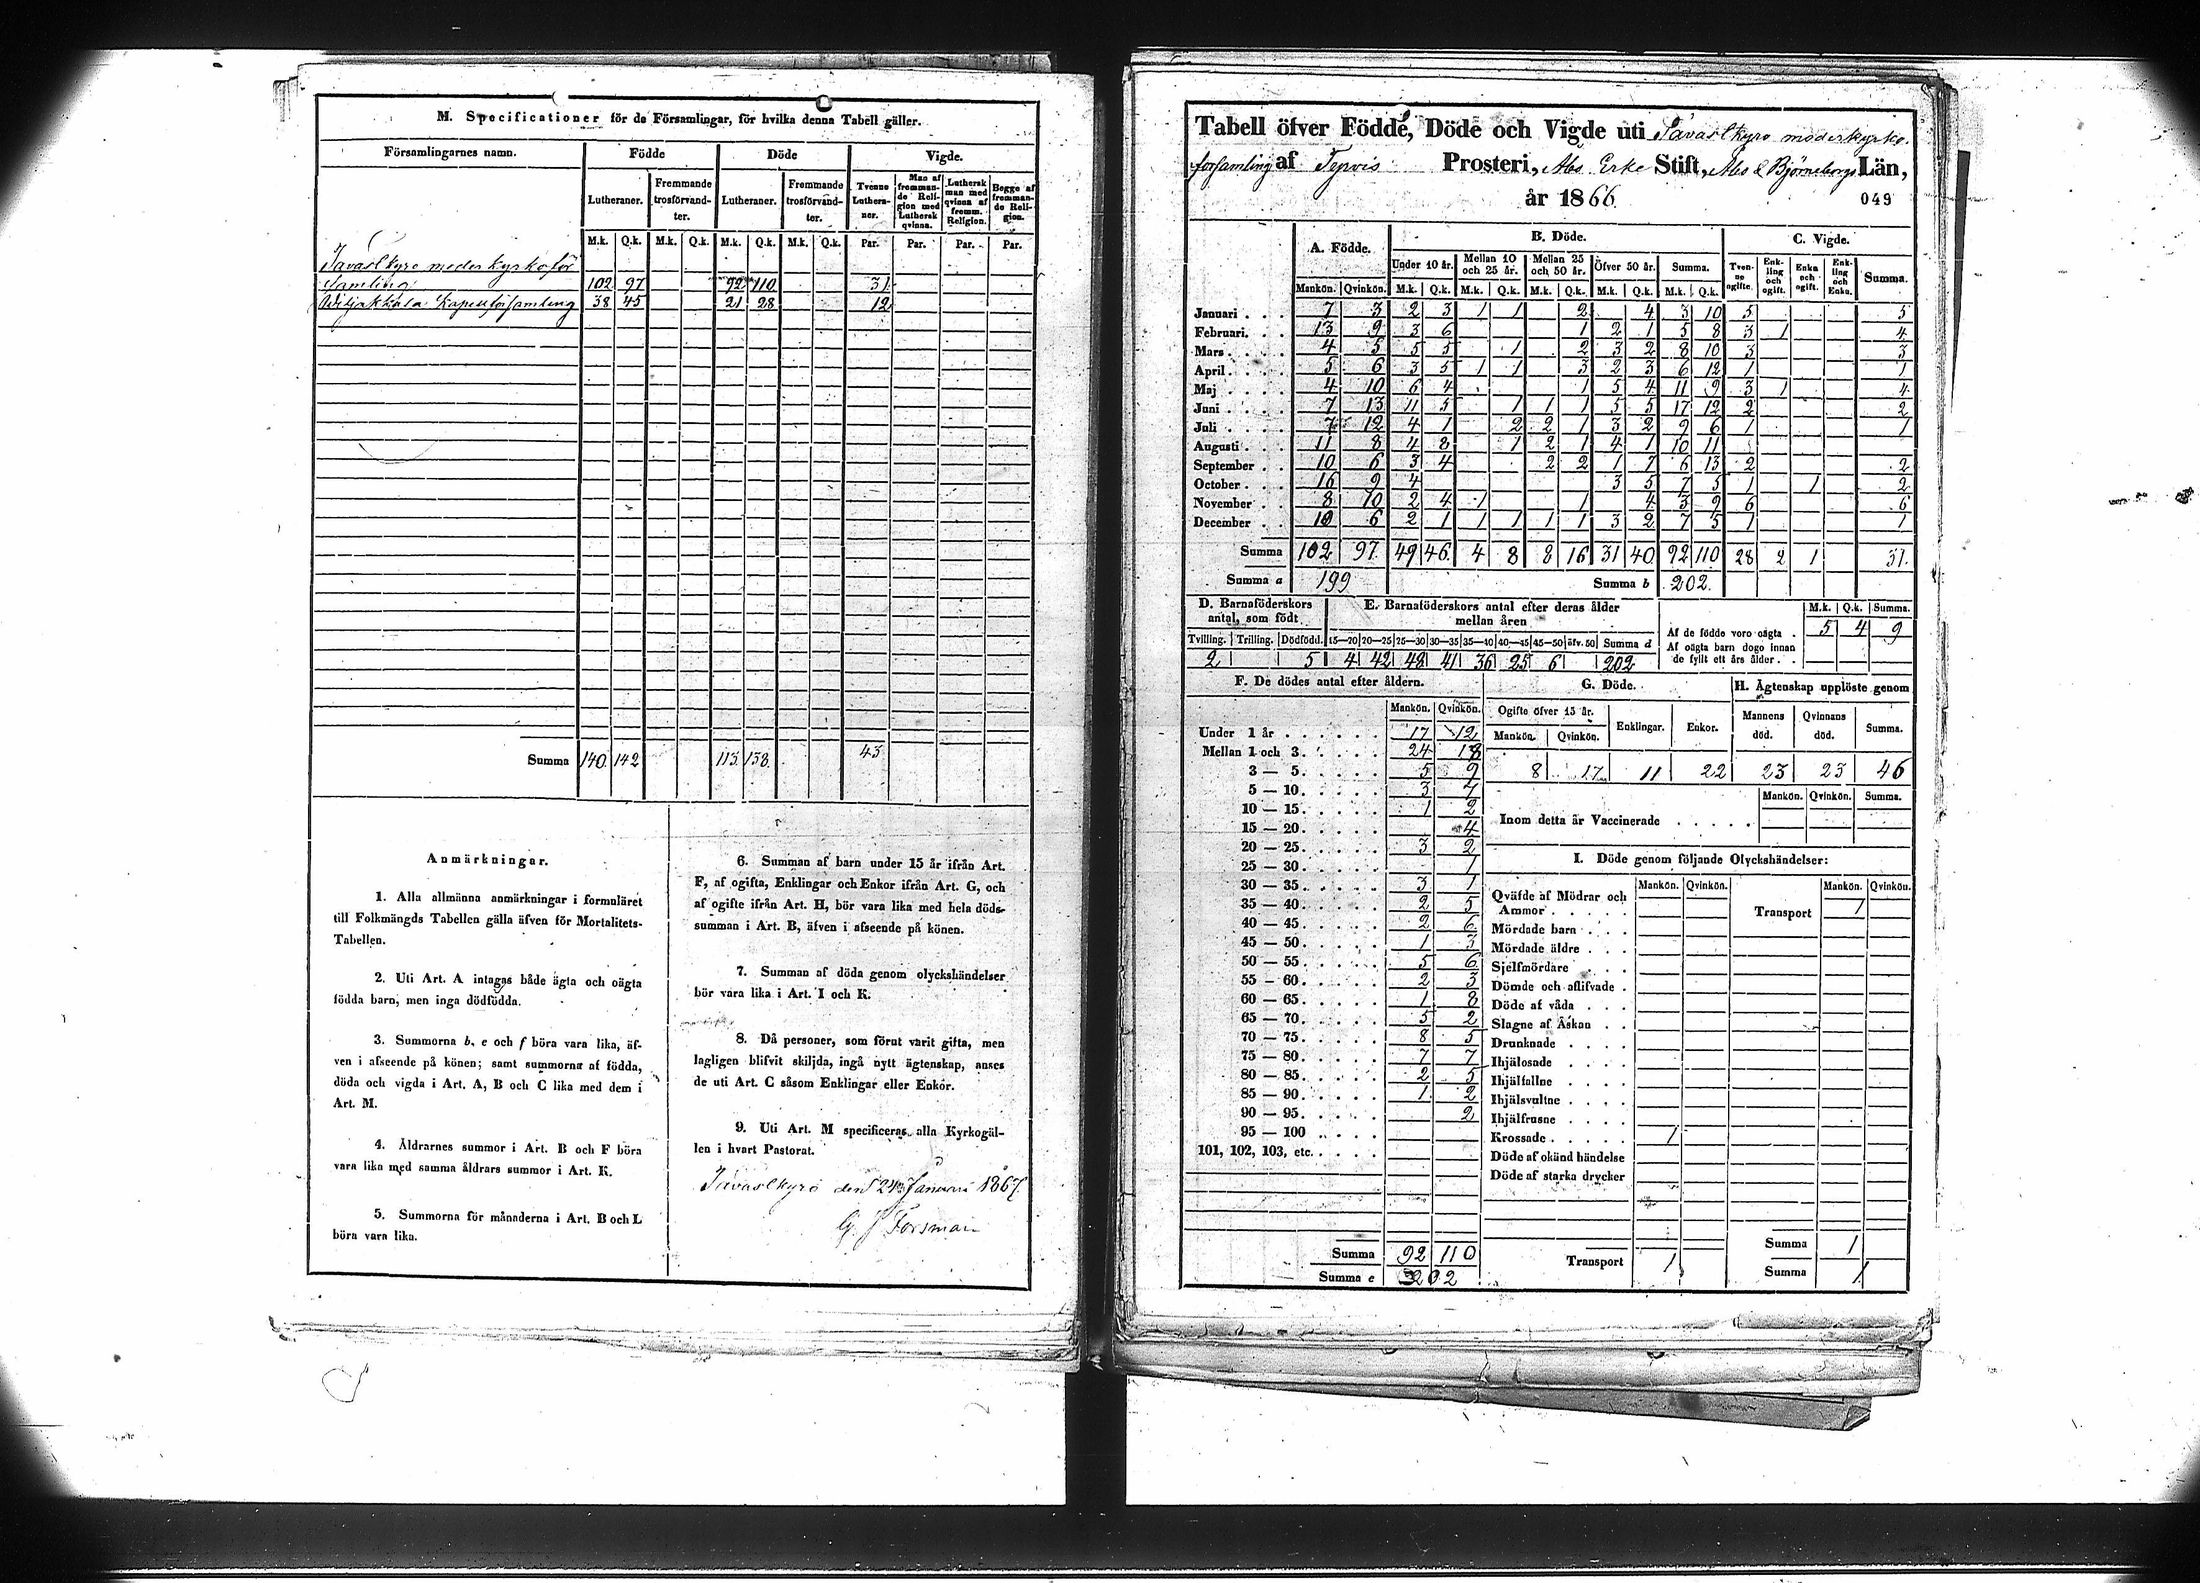 M. Specificationer för de Församlingar, för hvilka denna Tabell gäller.
Församlingarnes namn. Födde Döde Vigde.
Lutheraner. Fremmande trosförvandter. Lutheraner. Fremmande trosförvandter. Tvenne Lutheraner. Man af fremmande Religion med Luthersk qvinna. Luthersk man med qvinna af fremm. Religion. Begge af fremmande Religion.
M.k. Q.k. M.k. Q.k. M.k. Q.k. M.k. Q.k. Par. Par. Par. Par.
Tavastkyro moderkyrkoför
samling 102 97 92 110 31
kapellförsamling 38 45 21 28 12
Summa 140 142 113 138 43
Anmärkningar.
1. Alla allmänna anmärkningar i formuläret
till Folkmängds Tabellen gälla äfven för Mortalitets-
Tabellen.
2. Uti Art. A intagas både ägta och oägta
födda barn, men inga dödfödda.
3. Summorna b, e och f böra vara lika, äf-
ven i afseende på könen; samt summorna af födda,
döda och vigda i Art. A, B och C lika med dem i
Art. M.
4. Åldrarnes summor i Art. B och F böra
vara lika med samma åldrars summor i Art. K.
5. Summorna för månaderna i Art. B och L
böra vara lika.
6. Summan af barn under 15 år ifrån Art.
F, af ogifta, Enklingar och Enkor ifrån Art. G, och
af ogifte ifrån Art. H, bör vara lika med hela döds-
summan i Art. B, äfven i afseende på könen.
7. Summan af döda genom olyckshändelser
bör vara lika i Art. I och K.
8. Då personer, som förut varit gifta, men
lagligen blifvit skiljda, ingå nytt ägtenskap, anses
de uti Art. C såsom Enklingar eller Enkor.
9. Uti Art. M specificeras alla Kyrkogäl-
len i hvart Pastorat.
Tavastkyro den 24 Januari 1867.
G. J Forsman
Tabell öfver Födde, Döde och Vigde uti Tavastkyro moderkyrko-
församling af Tyrvis Prosteri, Åbo Erke Stift, Åbo & Björneborgs Län,
år 1866. 049
A. Födde. B. Döde. C. Vigde.
Under 10 år. Mellan 10 och 25 år. Mellan 25 och 50 år. Öfver 50 år. Summa. Tvenne ogifte. Enkling och ogift. Enka och ogift. Enkling och Enka. Summa.
Mankön. Qvinkön. M.k. Q.k. M.k. Q.k. M.k. Q.k. M.k. Q.k. M.k. Q.k.
Januari 7 3 2 3 1 1 2 4 3 10 5 5
Februari. 13 9 3 6 1 2 1 5 8 3 1 4
Mars 4 5 5 5 1 2 3 2 8 10 3 3
April 5 6 3 5 1 1 3 2 3 6 12 1 1
Maj 4 10 6 4 1 5 4 11 9 3 1 4
Juni 7 13 11 5 1 1 1 5 5 17 12 2 2
Juli 7 12 4 1 2 2 1 3 2 9 6 1 1
Augusti 11 8 4 8 1 2 1 4 1 10 11
September 10 6 3 4 2 2 1 7 6 13 2 2
October 16 9 4 3 5 7 5 1 1 2
November 8 10 2 4 1 1 4 3 9 6 6
December 10 6 2 1 1 1 1 1 3 2 7 5 1 1
Summa 102 97 49 46 4 8 8 16 31 40 92 110 28 2 1 31.
Summa a 199 Summa b 202.
D. Barnaföderskors antal, som födt E. Barnaföderskors antal efter deras ålder mellan åren
M.k. Q.k. Summa.
Af de födde voro oägta 5 4 9
Af oägta barn dogo innan
de fyllt ett års ålder.
Tvilling. Trilling. Dödfödd. 15—20 20—25 25—30 30—35 35—40 40—45 45—50 öfv. 50 Summa d
2 5 4 42 48 41 36 25 6 202
F. De dödes antal efter åldern.
Mankön. Qvinkön.
Under 1 år 17 12
Mellan 1 och 3 24 18
3 — 5 5 9
5 — 10 3 7
10 — 15 1 2
15 — 20 4
20 — 25 3 2
25 — 30 1
30 — 35 3 1
35 — 40 2 5
40 — 45 2 6
45 — 50 1 3
50 — 55 5 6
55 — 60 2 3
60 — 65 1 8
65 — 70 5 2
70 — 75 8 5
75 — 80 7 7
80 — 85 2 5
85 — 90 1 2
90 — 95 2
95 — 100
101, 102, 103, etc.
Summa 92 110
Summa e 202
G. Döde. H. Ägtenskap upplöste genom
Ogifte öfver 15 år. Enklingar. Enkor. Mannens död. Qvinnans död. Summa.
Mankön. Qvinkön.
8 17 11 22 23 23 46
Mankön. Qvinkön. Summa.
Inom detta år Vaccinerade
I. Döde genom följande Olyckshändelser:
Mankön. Qvinkön. Mankön. Qvinkön.
Qväfde af Mödrar och
Ammor
Transport 1
Mördade barn
Mördade äldre
Sjelfmördare
Dömde och aflifvade
Döde af våda
Slagne af Åskan
Drunknade
Ihjälosade
Ihjälfallne
Ihjälsvultne
Ihjälfrusne
Krossade 1
Döde af okänd händelse
Döde af starka drycker
Summa 1
Transport 1
Summa 1